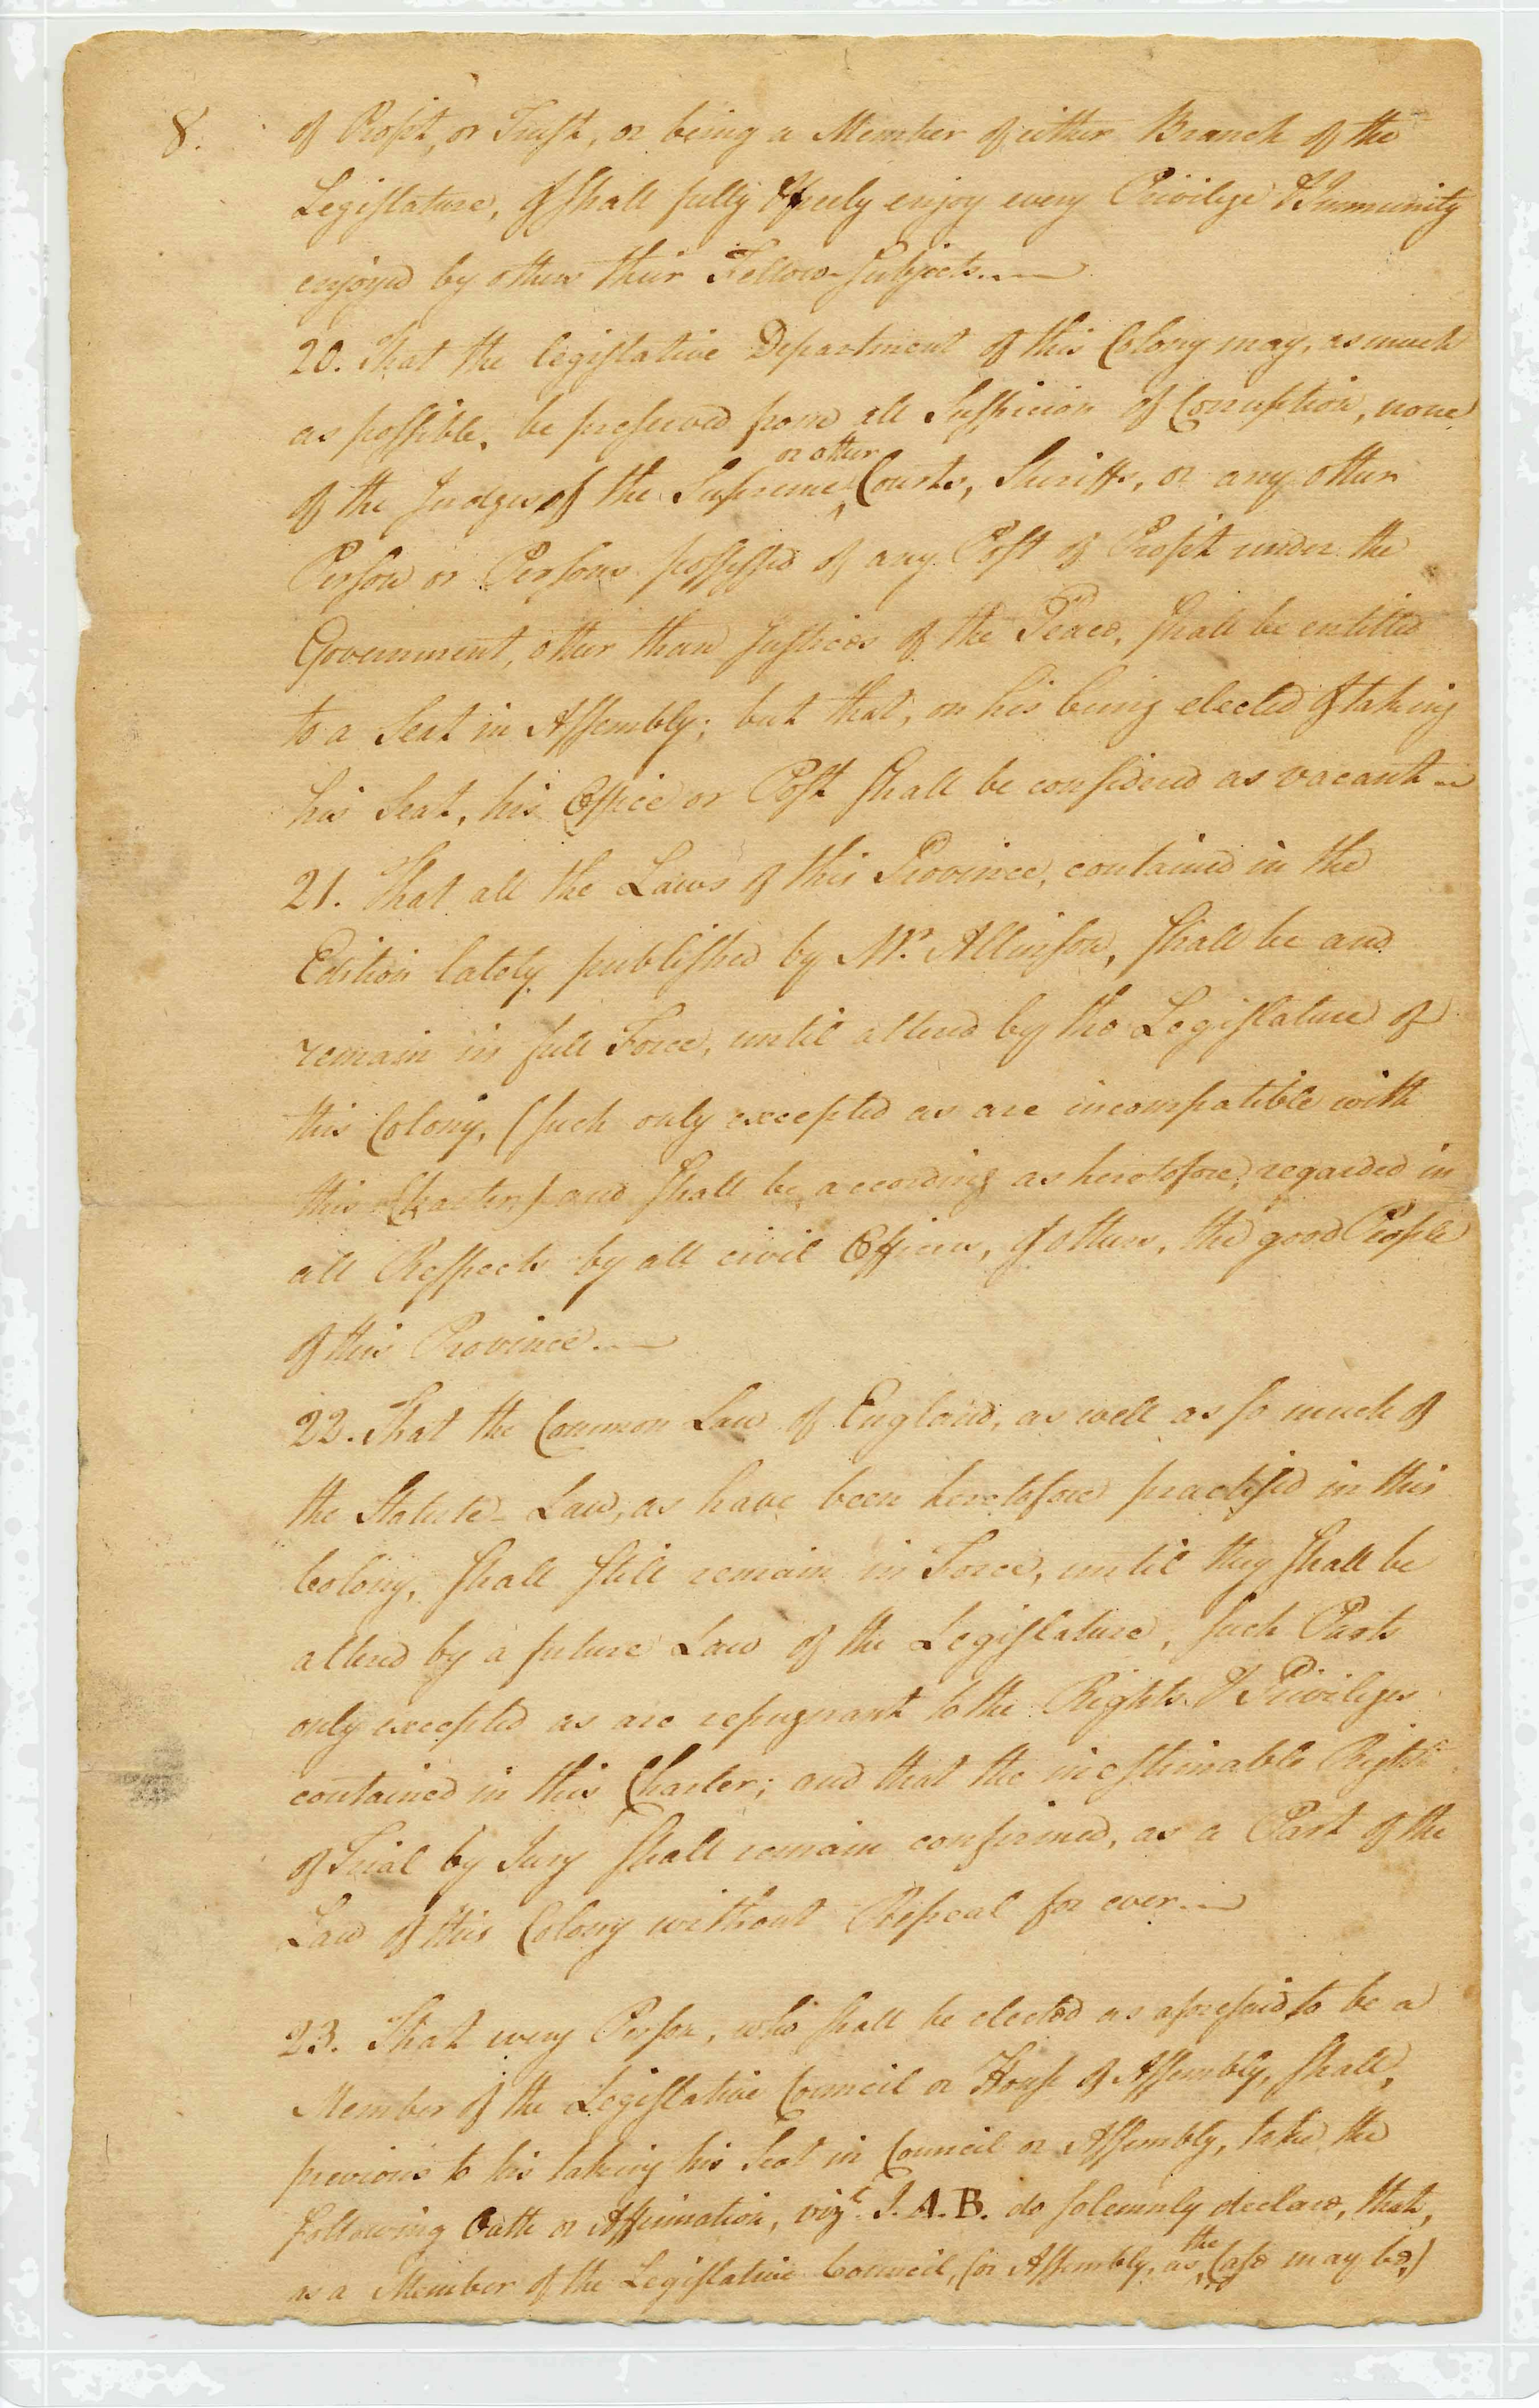 8.
of Profit, or Trust, or being a Member of either Branch of the
Legislature, & shall fully & freely enjoy every Privilege & Immunity
enjoyed by others their Fellow-Subjects.
20. That the legislative Department of this Colony may, as much
as possible, be preserved from all Suspicion of Corruption, none
of the Judges of the Supreme or other Courts, Sheriffs, or any other
Person or Persons possessed of any Post of Profit under the
Government, other than Justices of the Peace, shall be entitled
to a Seat in Assembly; but that, on his being elected & taking
his Seat, his Office or Post shall be considered as vacant
21. That all the Laws of this Province, contained in the
Edition lately published by Mr. Allinson, shall be and
remain in full Force, until altered by the Legislature of
this Colony, (such only excepted as are incompatible with
this Charter) and shall be, according as heretofore, regarded in
all Respects by all civil Officers, & others, the good People
of this Province.
22. That the Common Law of England, as well as so much of
the Statute-Law, as have been heretofore practised in this
Colony, shall still remain in Force, until they shall be
altered by a future Law of the Legislature, such Parts
only excepted as are repugnant to the Rights & Privileges
contained in this Charter; and that the inestimable Right
of Trial by Jury shall remain confirmed, as a Part of the
Law of this Colony without Repeal for ever.
23. That every Person, who shall be elected as aforesaid to be a
Member of the Legislative Council or House of Assembly, shall,
previous to his taking his Seat in Council or Assembly, take the
following Oath or Affirmation, vizt. I. A. B. do solemnly declare, that,
as a Member of the Legislative Council, (or Assembly, as the Case may be,)